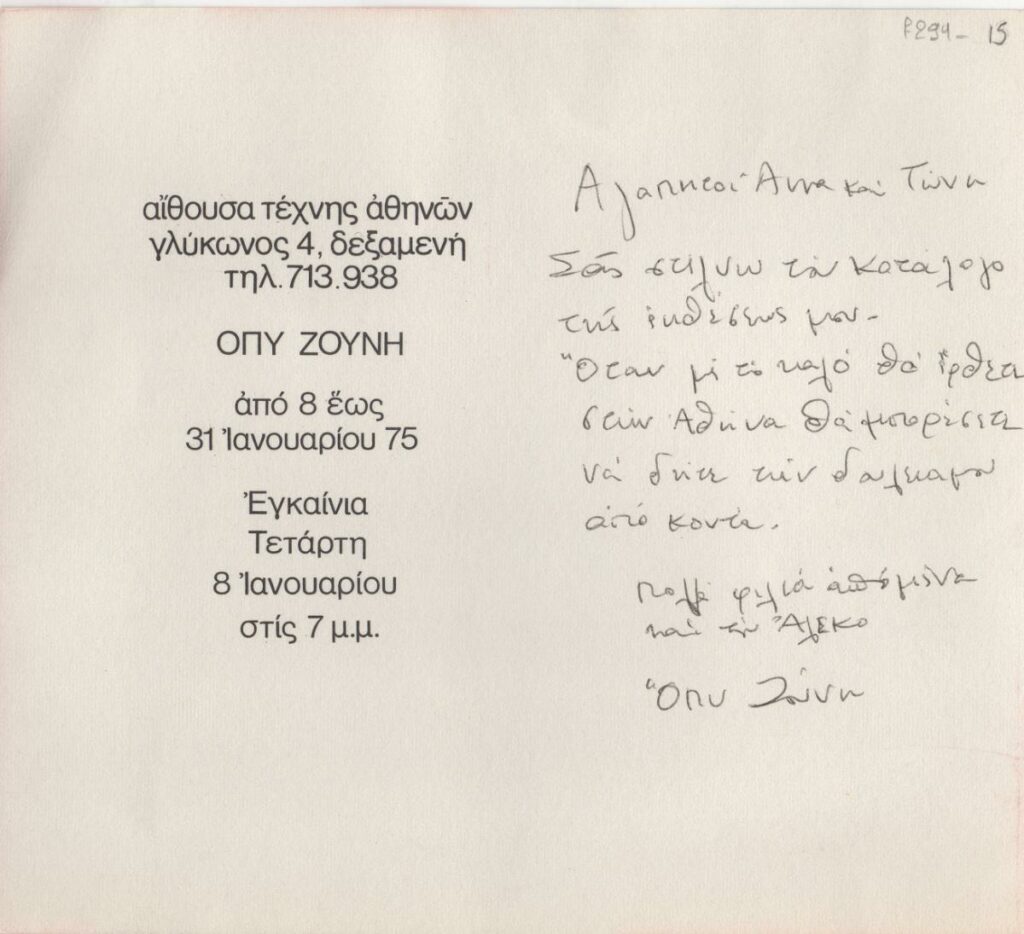 F294- 15
αἴθουσα τέχνης ἀθηνῶν
γλύκωνος 4, δεξαμενή
τηλ.713.938
ΟΠΥ ΖΟΥΝΗ
ἀπό 8 ἕως
31 Ἰανουαρίου 75
Ἐγκαίνια
Τετάρτη
8 Ἰανουαρίου
στίς 7 μ.μ.
Αγαπητοί Αννα και Τώνη
Σᾶς στέλνω τόν κατάλογο
τῆς ἐκθέσεώς μου-
Ὅταν μέ τό καλό θά ἔρθετε
στήν Ἀθήνα θά μπορέσετε
νά δῆτε τήν δουλειά μου
ἀπό κοντά.
Πολλά φιλιά ἀπό μένα
καί τόν Ἀλέκο
Ὄπυ Ζούνη